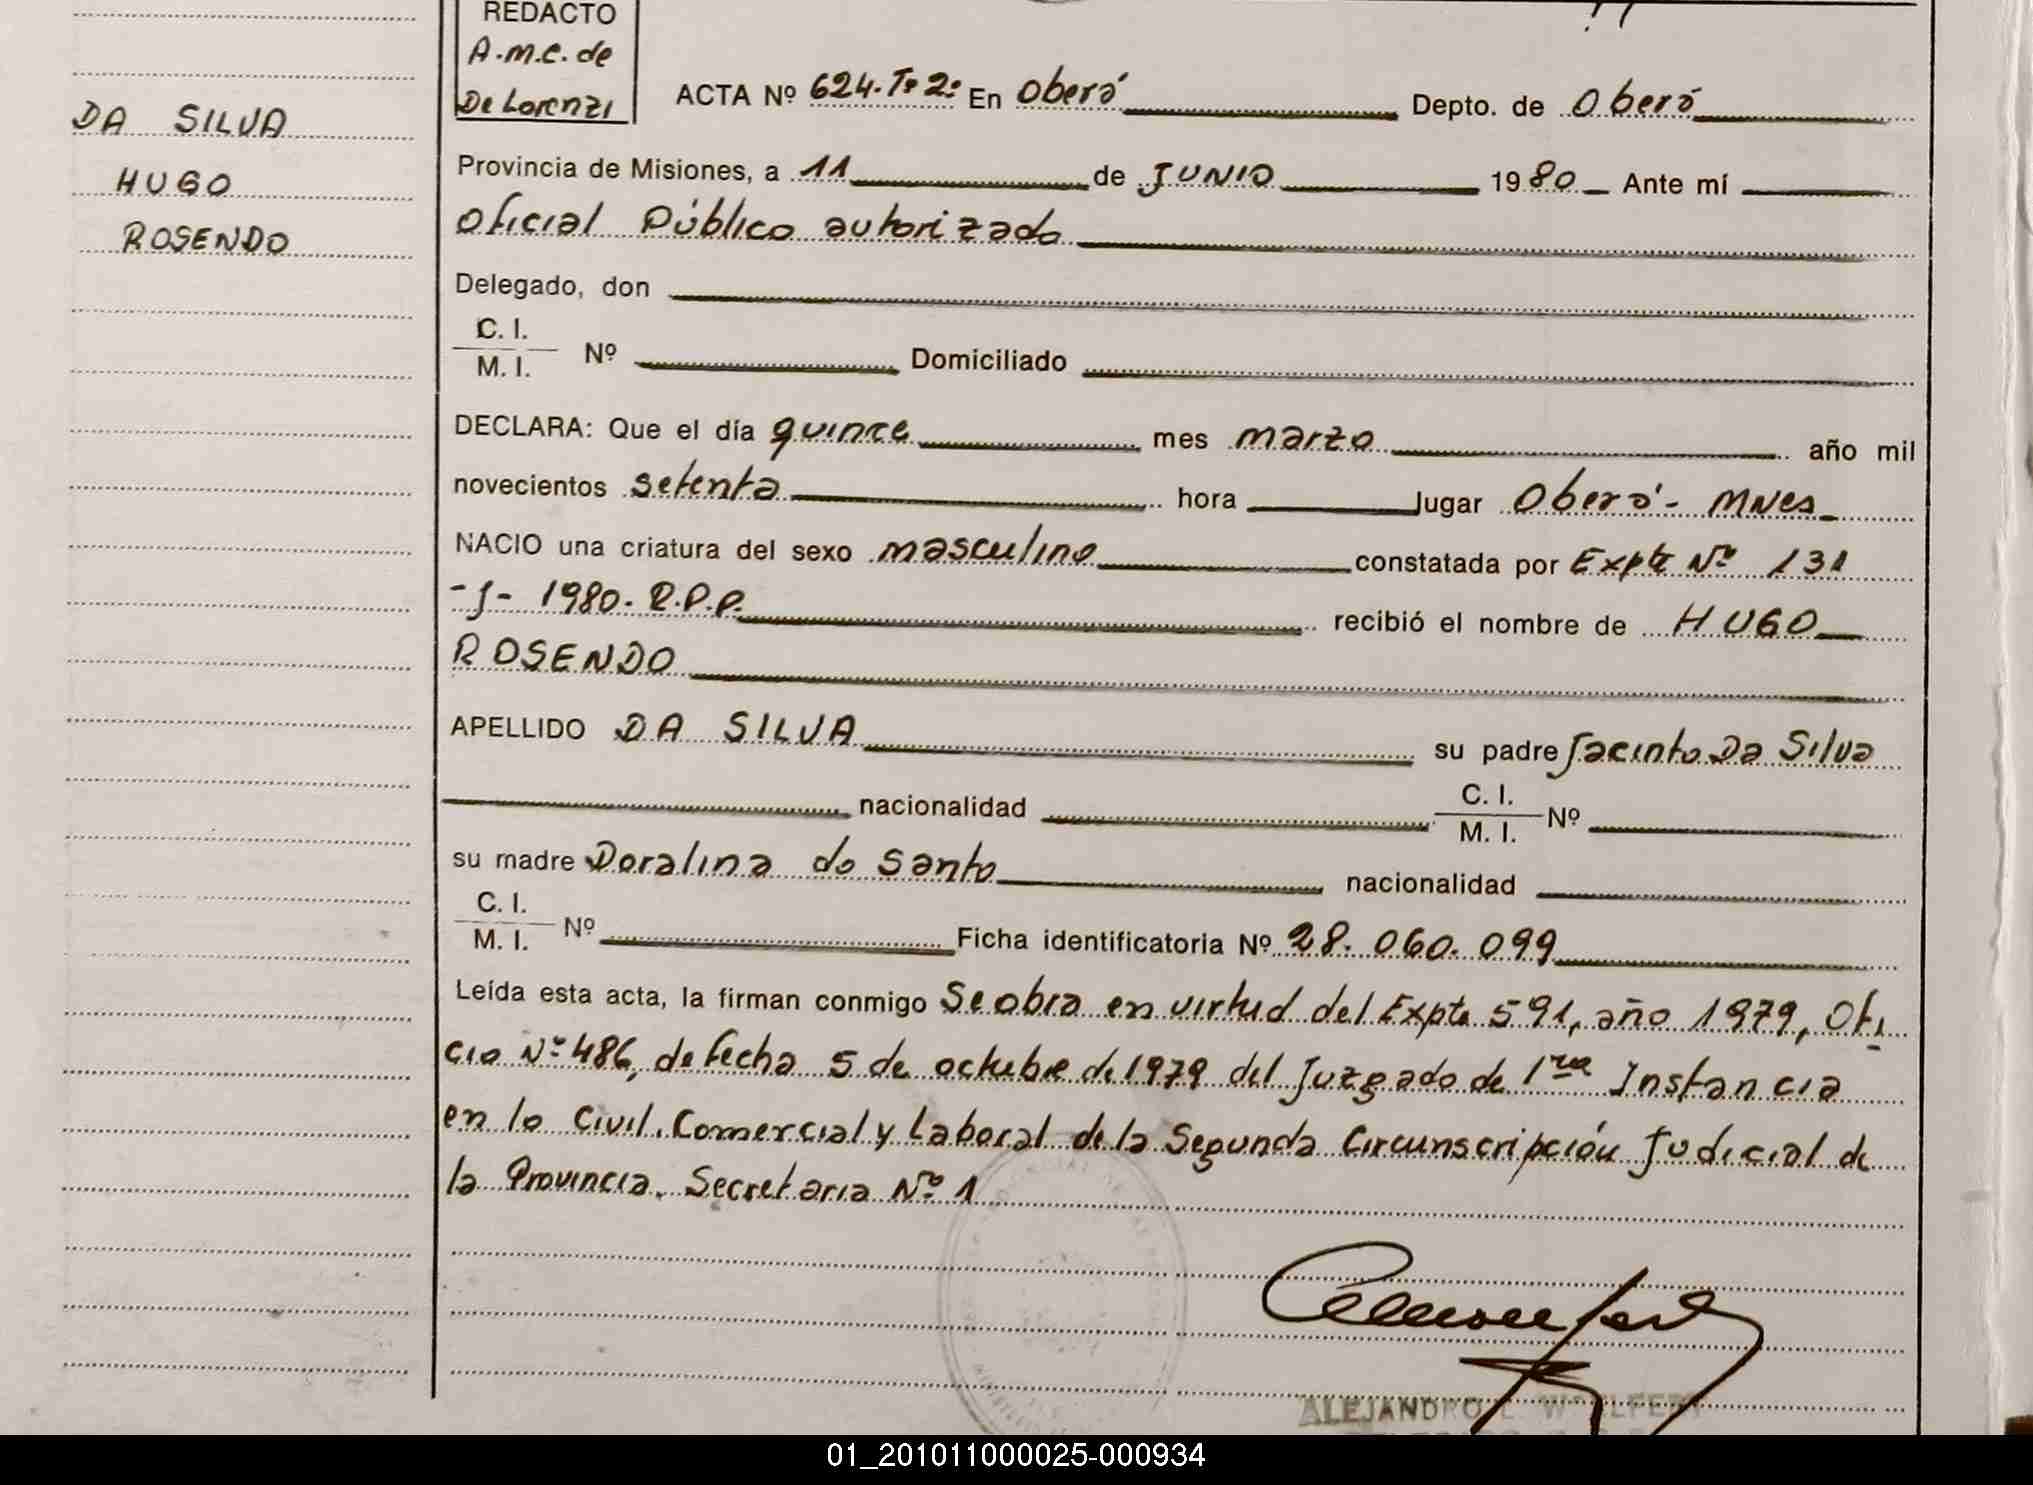 REDACTO
A.M.C. de
De Lorenzi
DA SILVA
HUGO
ROSENDO
ACTA Nº 624. Tº 2º En Oberá Depto. de Oberá
Provincia de Misiones, a 11 de JUNIO 1980 Ante mí
Oficial Público autorizado
Delegado, don
C. I.
M. I. Nº Domiciliado
DECLARA: Que el día quince mes marzo año mil
novecientos setenta hora lugar Oberá - Mnes
NACIO una criatura del sexo masculino constatada por Expte Nº 131
-J- 1980. R.P.P. recibió el nombre de HUGO
ROSENDO
APELLIDO DA SILVA su padre Jacinto Da Silva
nacionalidad C. I.
M. I. Nº
su madre Doralina do Santo nacionalidad
C. I.
M. I. Nº Ficha identificatoria Nº 28.060.099
Leída esta acta, la firman conmigo Se obra en virtud del Expte 591, año 1979, Ofi
cio Nº 486, de fecha 5 de octubre de 1979 del Juzgado de 1ra Instancia
en lo Civil, Comercial y Laboral de la Segunda Circunscripción Judicial de
la Provincia. Secretaria Nº 1
ALEJANDRO
01_201011000025-000934